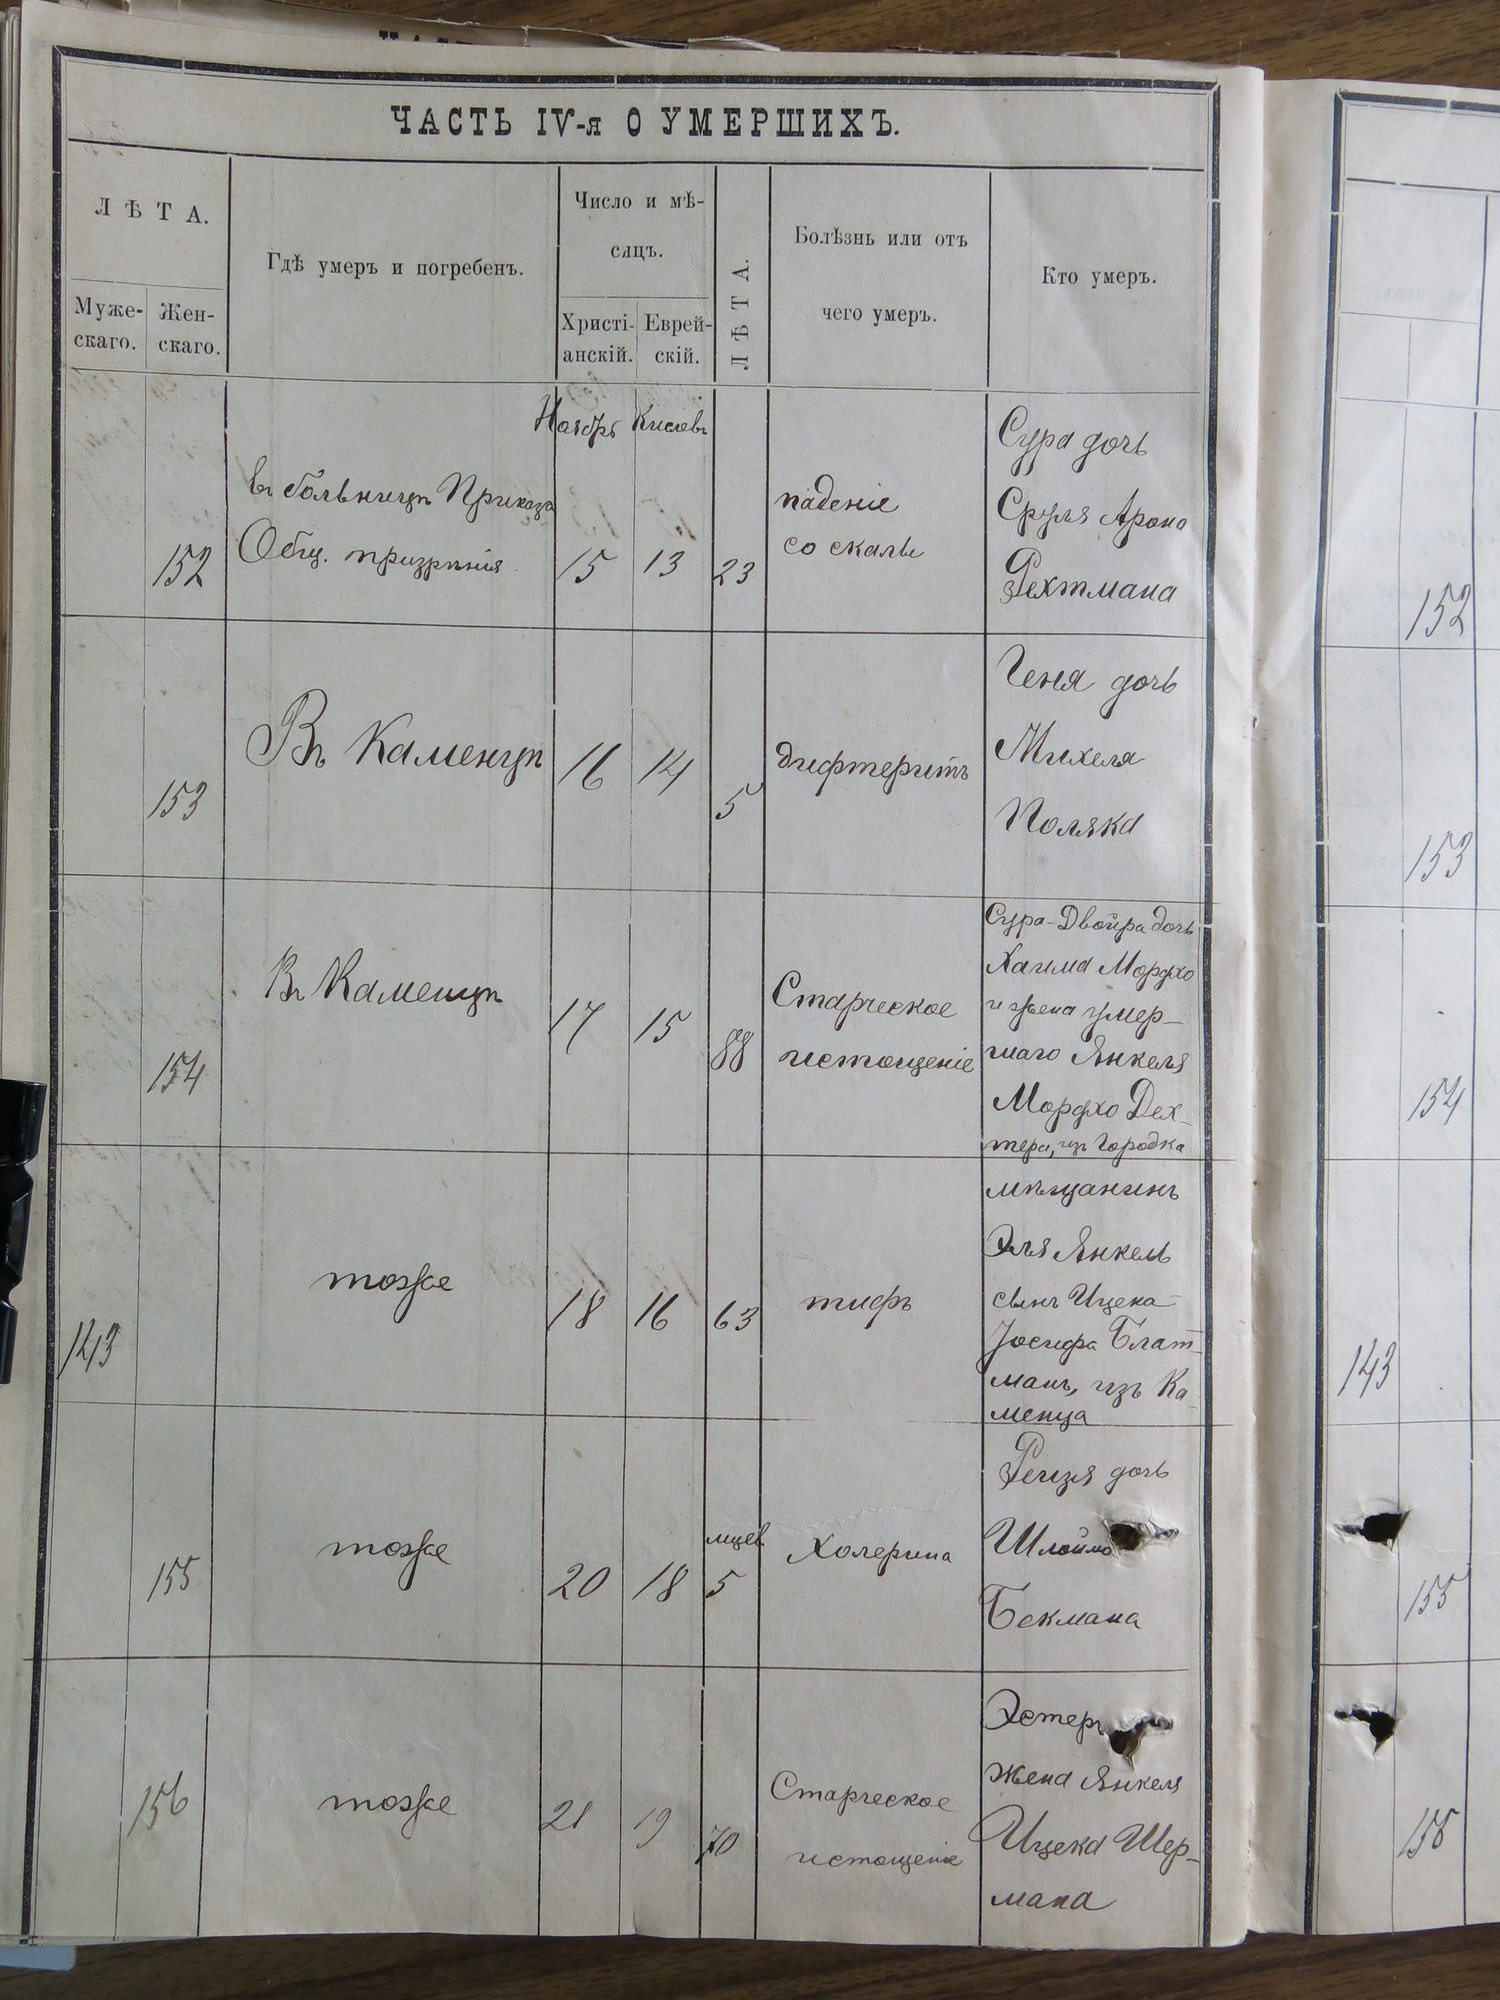 ЧАСТЬ IV-я О УМЕРШИХЪ.
ЛѢТА.
Муже-
скаго.
Жен-
скаго.
Гдѣ умеръ и погребенъ.
Число и мѣ-
сяцъ.
Христі-
анскій.
Еврей-
скій.
ЛѢТА.
Болѣзнь или отъ
чего умеръ.
Кто умеръ.
Ноябрь Кислевъ
152
въ больницѣ Приказа
Общ. призрѣнія
15
13
23
паденіе
со скалы
Сура дочь
Сруля Арона
Рехтмана
153
Въ Каменцѣ
16
14
5
дифтеритъ
Геня дочь
Михеля
Поляка
154
Въ Каменцѣ
17
15
88
Старческое
истощеніе
Сура-Двойра дочь
Хаима Мордхо
и жена умер-
шаго Янкеля
Мордхо Дех-
тера, изъ Городка
143
тоже
18
16
63
тифъ
мѣщанинъ
Эля Янкель
сынъ Ицека-
Іосифа Блат-
манъ, изъ Ка-
менца
155
тоже
20
18
мцев
5
Холерина
Рейзя дочь
Шлойма
Бекмана
156
тоже
21
19
70
Старческое
истощеніе
Эстеръ
жена Янкеля
Ицека Шер-
мана
152
153
154
143
155
156